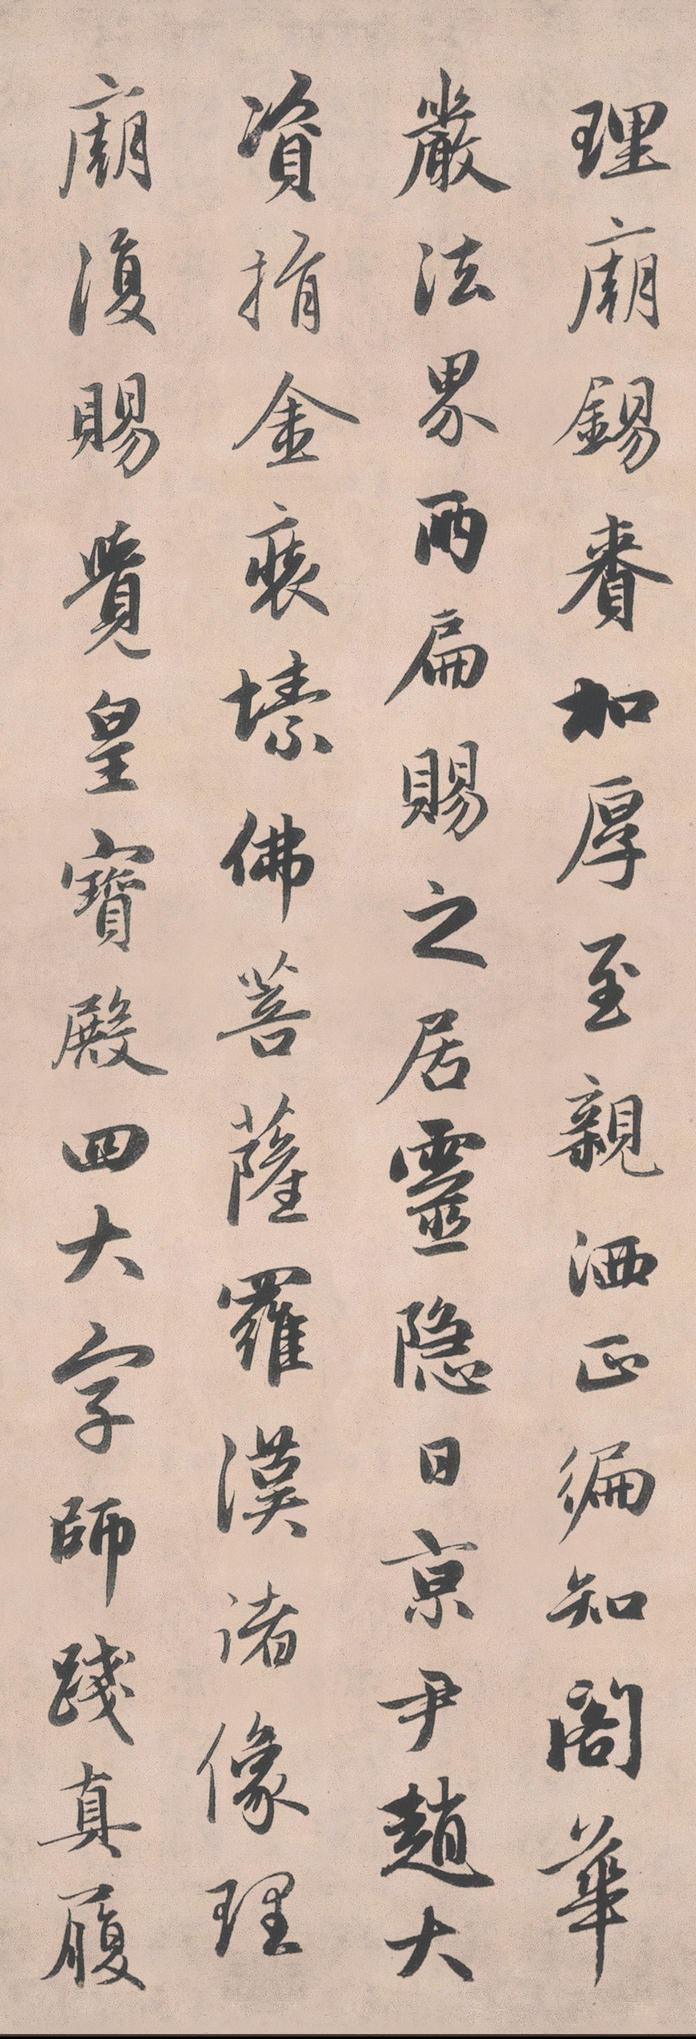 理廟錫賚加厚至親洒正徧知閣華
嚴法界兩扁賜之居靈隱日京尹趙大
資捐金裝塐佛菩薩羅漢諸像理
廟復賜覺皇寶殿四大字師踐真履